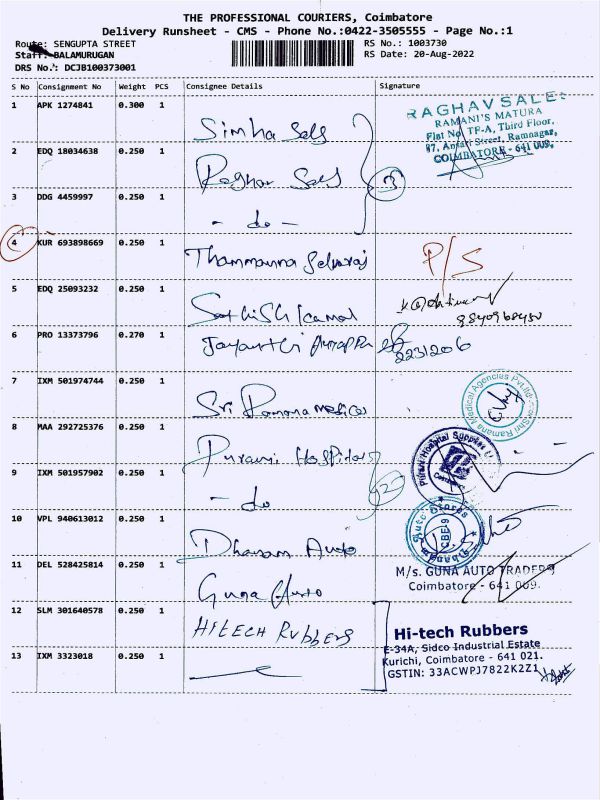 THE PROFESSIONAL COURIERS, Coimbatore
Delivery Runsheet - CMS - Phone No.:0422-3505555 - Page No.:1
Route: SENGUPTA STREET
RS No.: 1003730
Staff: BALAMURUGAN
RS Date: 20-Aug-2022
DRS No.: DCJB100373001
S No Consignment No Weight PCS Consignee Details Signature
1 APK 1274841 0.300 1 Simha Sales
RAGHAV SALES
RAMANI'S MATURA
Flat No TF-A, Third Floor,
87, Ansari Street, Ramnagar,
COIMBATORE - 641 009.
2 EDQ 18034638 0.250 1 Raghav Sales
3
3 DDG 4459997 0.250 1 - do -
4 KUR 693898669 0.250 1 Thammanna Selvaraj P/S
5 EDQ 25093232 0.250 1 Sathish Kamal
9840968450
6 PRO 13373796 0.270 1 Jayanthi
2231206
7 IXM 501974744 0.250 1 Sri Ramana Medical
Shri Ramana Medical Agencies Pvt.ltd
8 MAA 292725376 0.250 1 Purani Hospital
Hospital Supplies
9 IXM 501957902 0.250 1 - do -
2
10 VPL 940613012 0.250 1 Dharam Auto
Auto Stores
CBE-9
11 DEL 528425814 0.250 1 Guna Auto
M/s. GUNA AUTO TRADERS
Coimbatore - 641 009.
12 SLM 301640578 0.250 1 HITECH RUBBERS
Hi-tech Rubbers
E-34A, Sidco Industrial Estate
Kurichi, Coimbatore - 641 021.
GSTIN: 33ACWPJ7822K2Z1
13 IXM 3323018 0.250 1